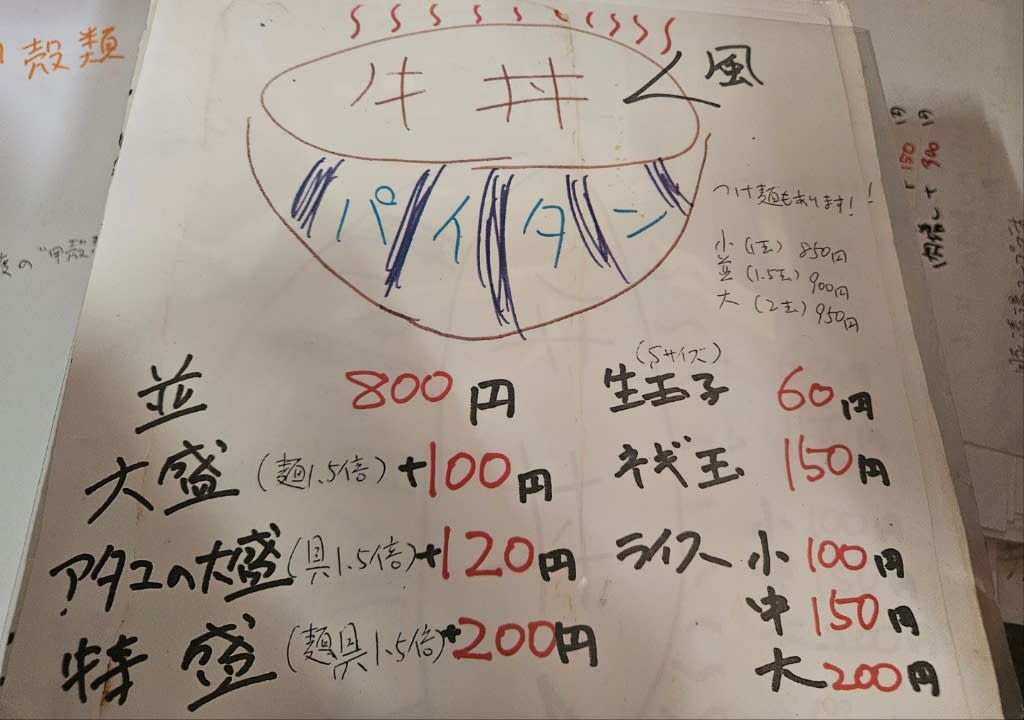 殻類
牛丼風
パイタン
つけ麺もあります!!
小(1玉) 850円
並(1.5玉) 900円
大(2玉) 950円
並 800円
大盛(麺1.5倍)+100円
アタマの大盛(具1.5倍)+120円
特盛(麺具1.5倍)+200円
(Sサイズ)
生玉子 60円
ネギ玉 150円
ライス 小 100円
中 150円
大 200円
150円
900円